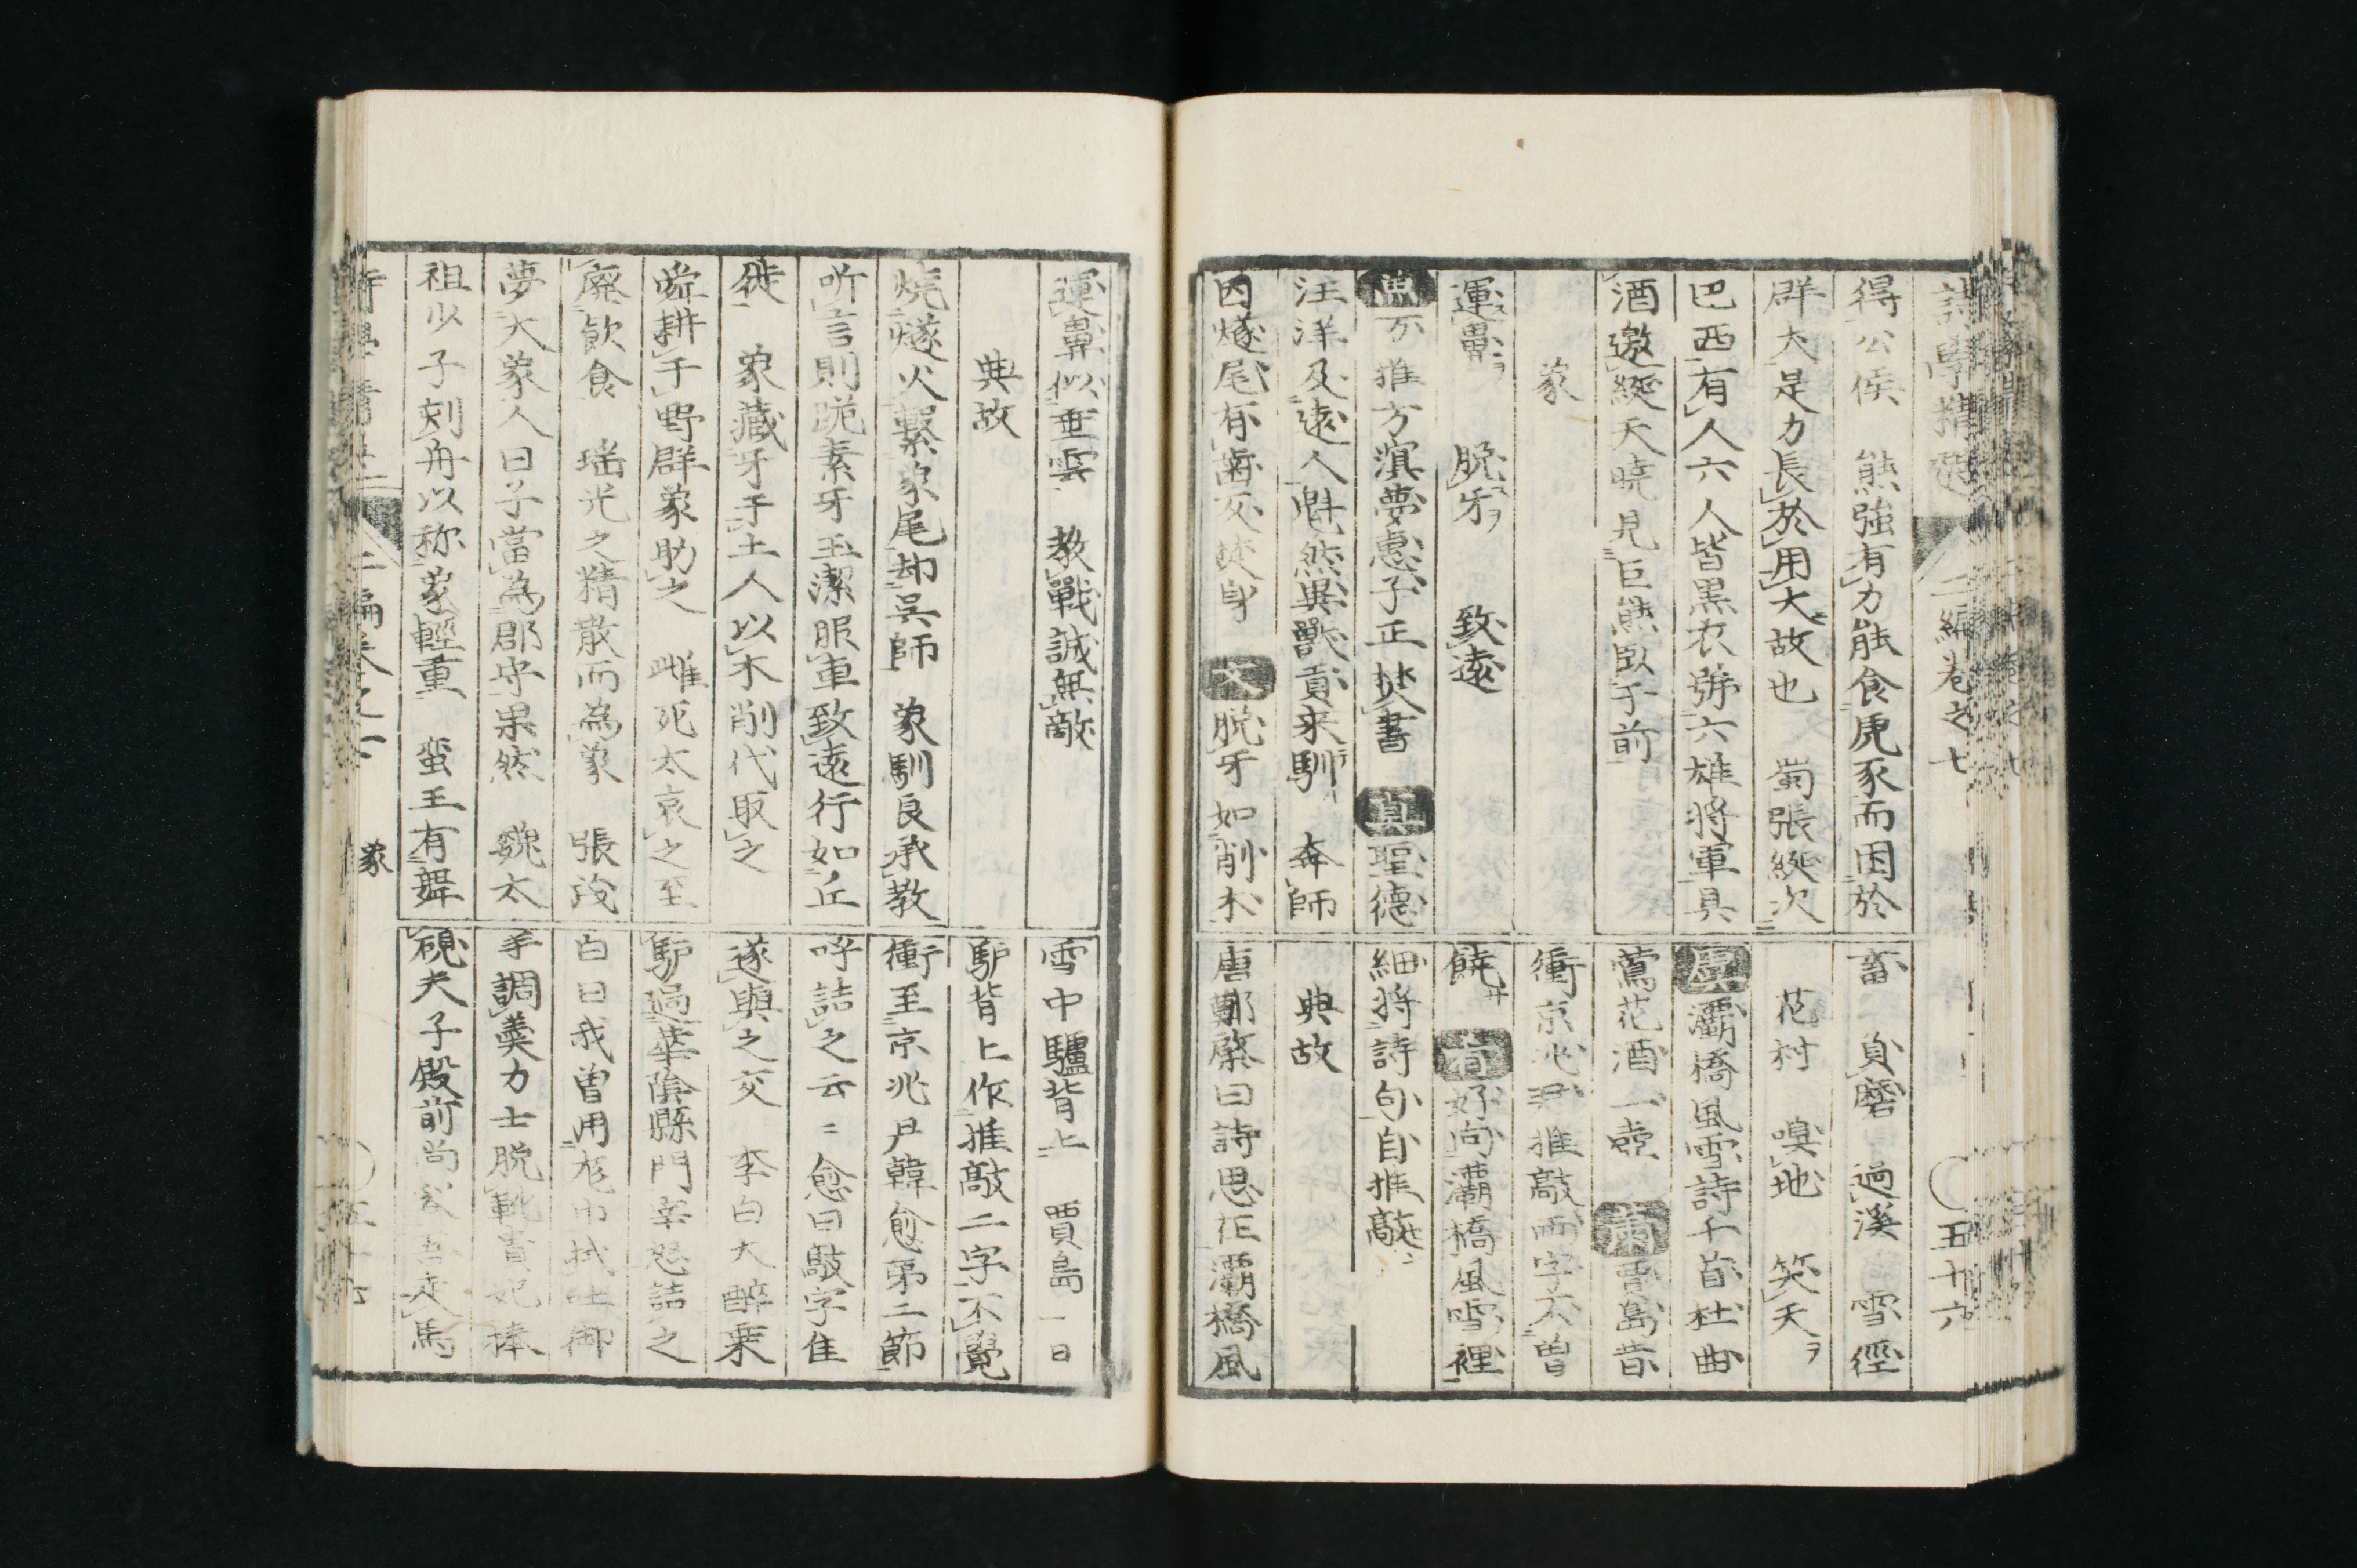 詩學精選 二編卷之七 五十六
得公侯 熊強有力能食虎豕而困於
群犬是力長於用大故也 蜀張綖次
巴西有人六人皆黒衣号六雄将軍具
酒邀綖天曉見巨熊臥于前
象
運鼻ヲ 脱牙ヲ 致遠
推方演夢惠子正焚書 真 聖德
汪洋及遠人魁然異獸貢来馴 奔師
因燧尾有齒反焚身 文 脱牙如削木
畜 負磨 過溪 雪徑
花村 嗅地 笑天ヲ
灞橋風雪詩千首杜曲
鶯花酒一壺 賈島昔
衝京兆尹推敲両字不曽
饒 好向灞橋風雪裡
細将詩句自推敲
典故
唐鄭綮曰詩思在灞橋風
運鼻似垂雲 教戰誠無敵
典故
燒燧火繋象尾却呉師 象馴良承教
听言則跪素牙玉潔服車致遠行如丘
徙 象藏牙于土人以木削代取之
舜耕于野群象助之 雌死太哀之至
廃飲食 瑶光之精散而為象 張茂
夢大象人曰子當為郡守果然 魏太
祖少子刻舟以称象輕重 蛮王有舞
雪中驢背上 賈島一日
驴背上作推敲二字不覺
衝至京兆尹韓愈第二節
呼詰之云云愈曰敲字佳
遂與之交 李白大醉乗
驴過華陰縣門宰怒詰之
白曰我曽用龙巾拭吐御
手調羹力士脱靴貴妃捧
硯天子殿前尚容吾走馬
象